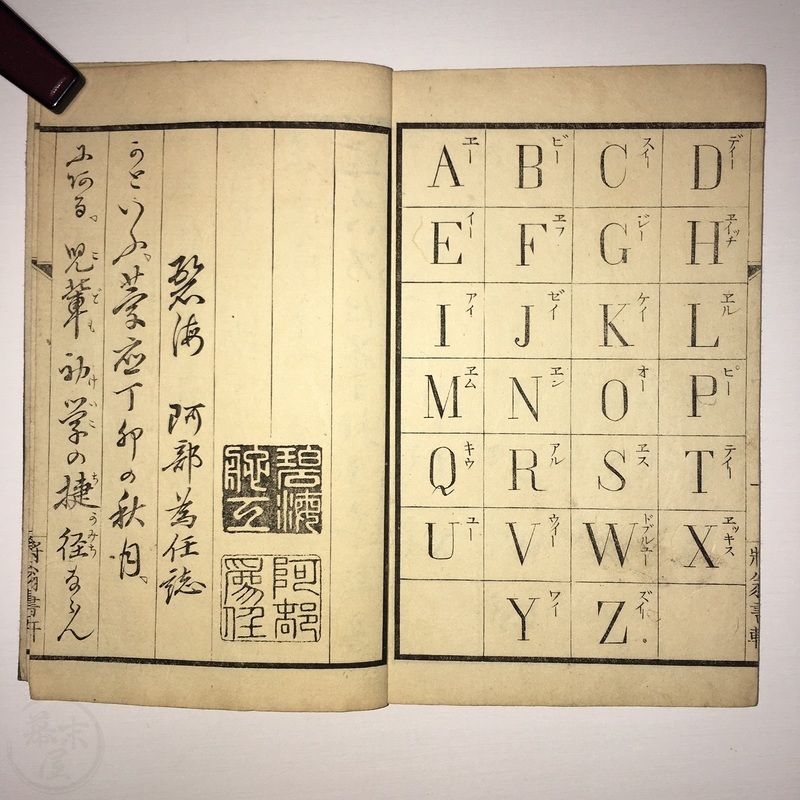 にある。児輩 学の捷径ならん
こども けいこ ちかみち
かといふ。慶應丁卯の秋月。
碧海 阿部為任誌
阿部為任
A エー B ビー C スイー D デイー
E イー F ヱフ G ジー H ヱイッチ
I アイ J ゼイ K ケイ L ヱル
M ヱム N ヱン O オー P ピー
Q キウ R アル S ヱス T テイー
U ユー V ウイー W ドブルユー X ヱッキス
Y ワイ Z ズイ
幕末屋